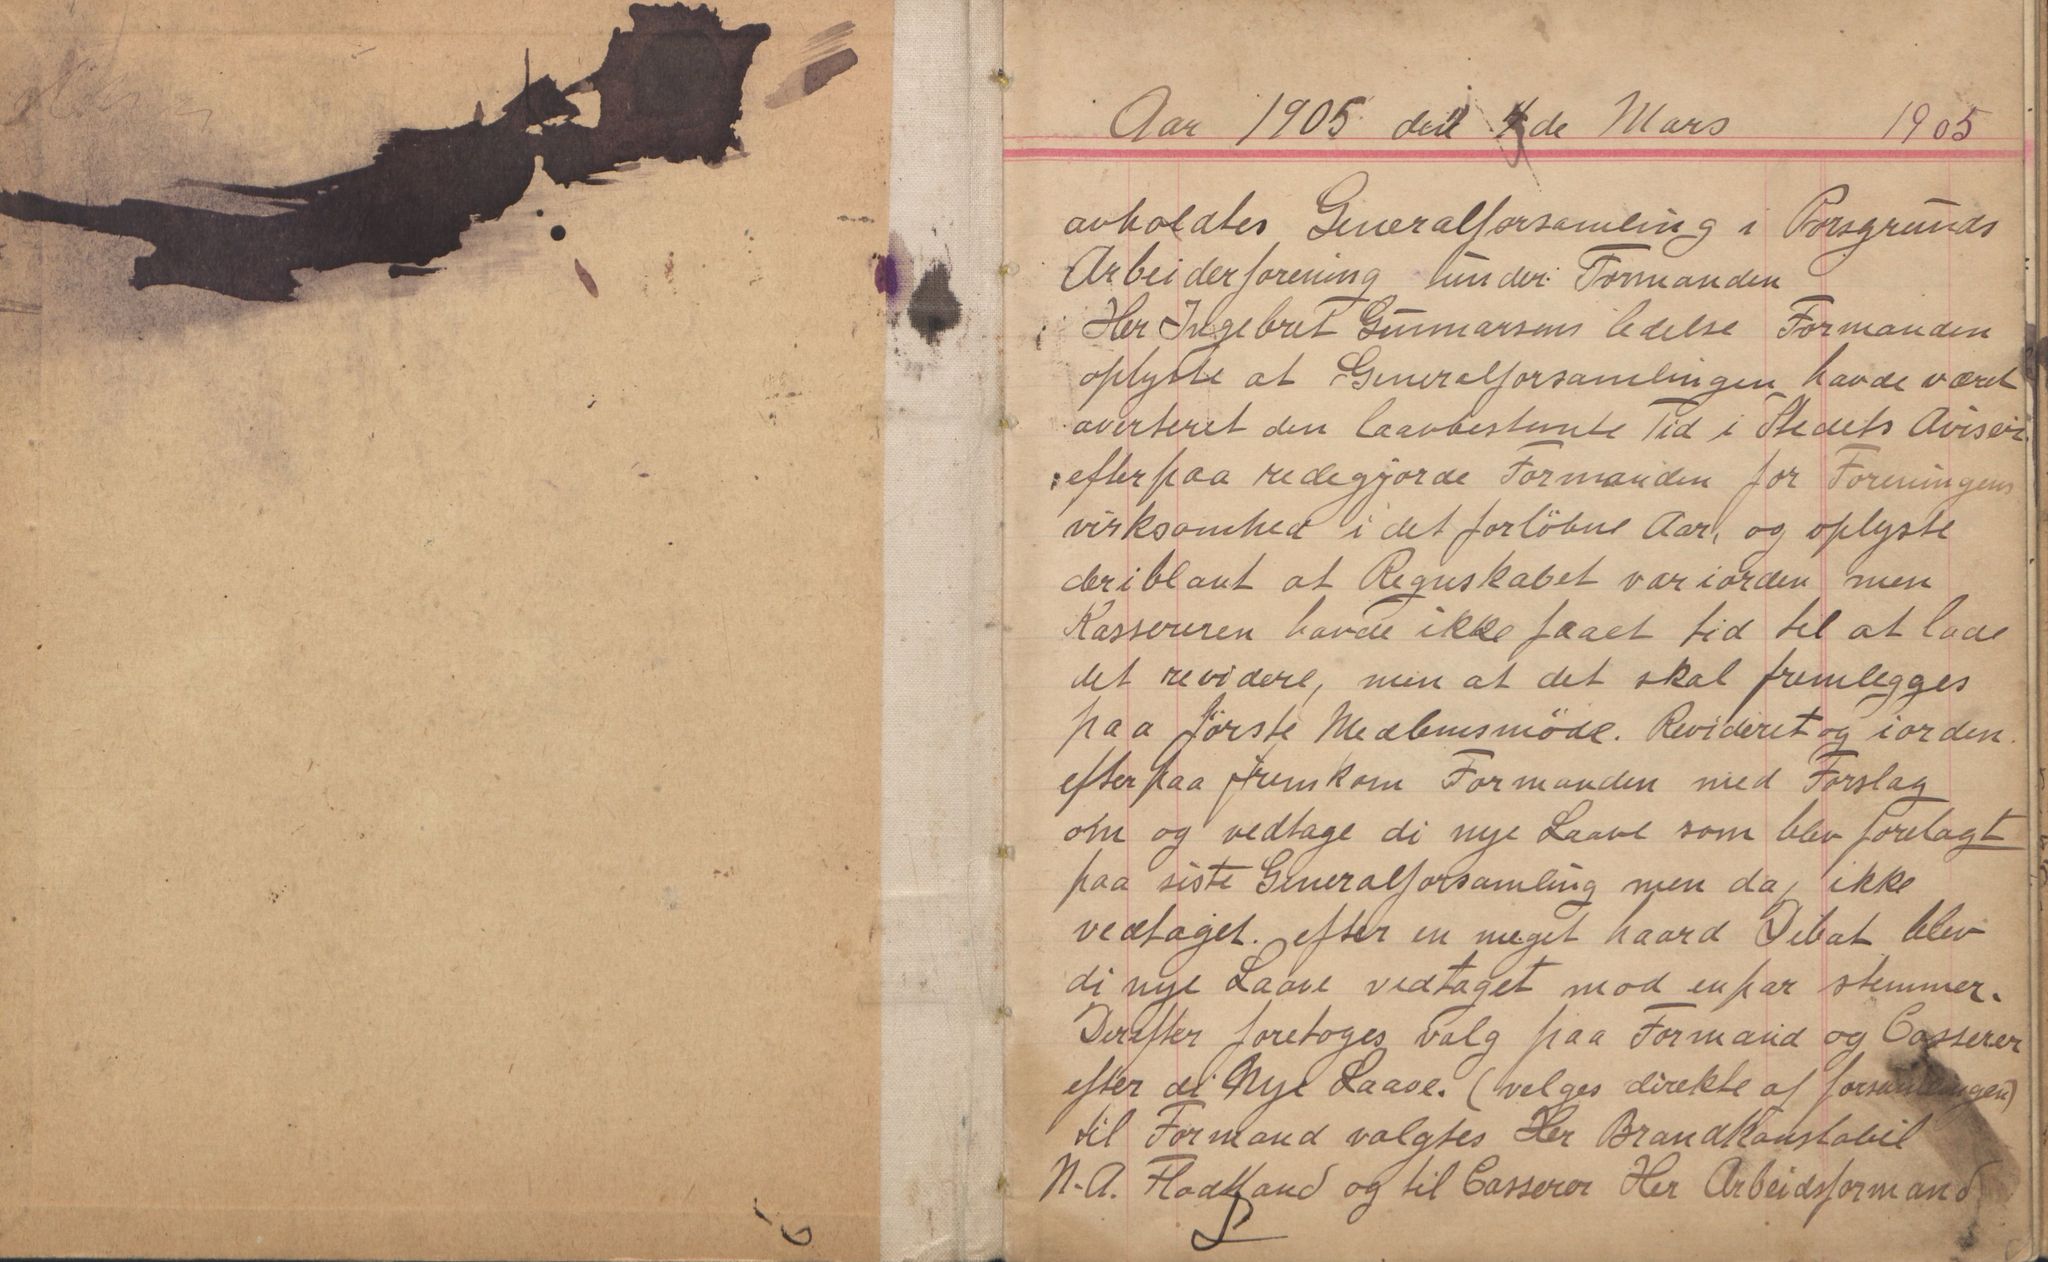 Aar 1905 den 4de Mars 1905
avholdtes Generalforsamling i Porsgrunds
Arbeiderforening under Formanden
Her Ingebret Gunnarsens ledelse Formanden
oplyste at Generalforsamlingen havde været
averteret den laavbestemte Tid i Stedets Aviser.
efterpaa redegjorde Formanden for Foreningens
virksomhed i det forløbne Aar, og oplyste
deriblant at Regnskabet var iorden men
Kassereren havde ikke faaet tid til at lade
det revidere, men at det skal fremlegges
paa første Medlemsmøde. Revideret og iorden.
efterpaa fremkom Formanden med Forslag
om og vedtage di nye Laave som blev forelagt
paa siste Generalforsamling men da, ikke
vedtaget. efter en meget haard Debat blev
di nye Laave vedtaget mod enpar stemmer.
Derefter foretoges valg paa Formand og Casserer
efter di Nye Laave. (velges direkte af forsamlingen)
til Formand valgtes Her Brandkonstabil
N. A. Flodstand og til Casserer Her Arbeidsformand